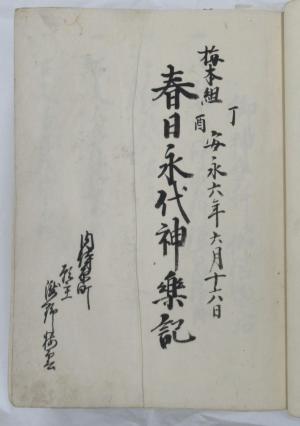 梅本組
丁酉 安永六年六月十八日
春日永代神樂記
願主